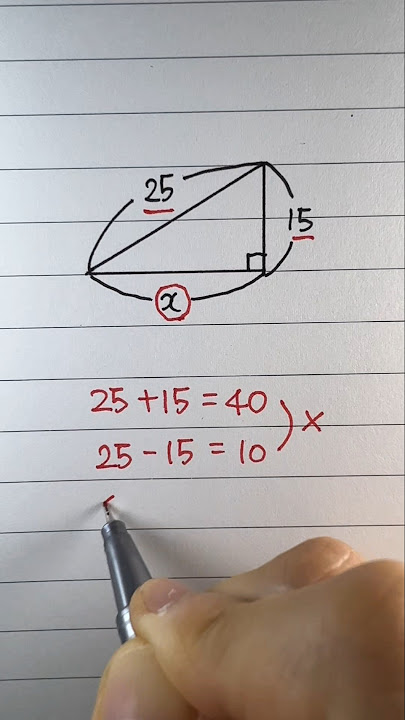 25
15
x
25 + 15 = 40
25 - 15 = 10
×